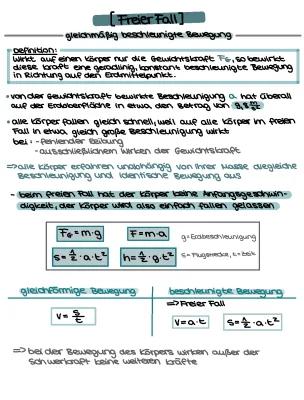 [ Freier Fall ]
gleichmäßig beschleunigte Bewegung
Definition:
Wirkt auf einen Körper nur die Gewichtskraft FG, so bewirkt
diese Kraft eine geradlinig, konstant beschleunigte Bewegung
in Richtung auf den Erdmittelpunkt.
• von der Gewichtskraft bewirkte Beschleunigung a hat überall
auf der Erdoberfläche in etwa, den Betrag von 9,81 m/s²
• alle Körper fallen gleich schnell, weil auf alle Körper im freien
Fall in etwa, gleich große Beschleunigung wirkt
bei: - fehlender Reibung
- ausschließlichem Wirken der Gewichtskraft
=> alle Körper erfahren unabhängig von ihrer Masse die gleiche
Beschleunigung und identische Bewegung aus
- beim freien Fall hat der Körper keine Anfangsgeschwin-
digkeit, der Körper wird also einfach fallen gelassen
FG = m·g F = m·a g = Erdbeschleunigung
s = 1/2 · a · t² h = 1/2 · g · t² s = Flugstrecke, t = Zeit
gleichförmige Bewegung beschleunigte Bewegung
=> Freier Fall
v = s/t v = a·t s = 1/2 · a · t²
=> bei der Bewegung des Körpers wirken außer der
Schwerkraft keine weiteren Kräfte